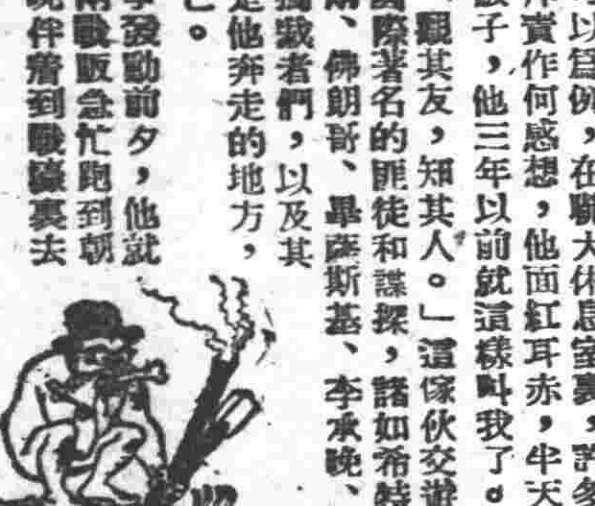 以爲例，在聯大休息室裏，許多
賣作何感想，他面紅耳赤，半天
子，他三年以前就這樣叫我了。
觀其友，知其人。」這傢伙交遊
際著名的匪徒和諜探，諸如希特
、佛朗哥、畢薩斯基、李承晚、
獨裁者們，以及其
是他奔走的地方，
。
發動前夕，他就
戰販急忙跑到朝
伴着到戰壕裏去